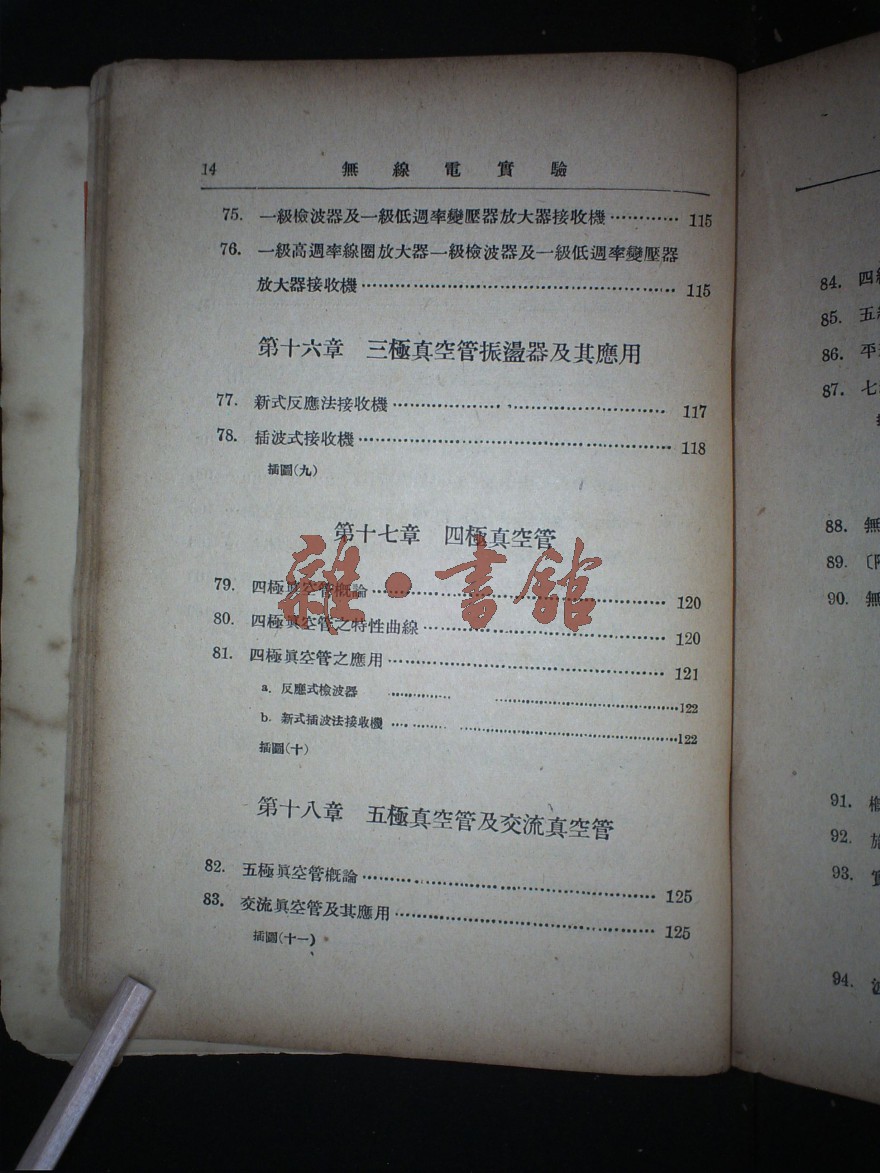 14 無線電實驗
75. 一級檢波器及一級低週率變壓器放大器接收機 ············ 115
76. 一級高週率線圈放大器一級檢波器及一級低週率變壓器
放大器接收機 ············ 115
第十六章 三極真空管振盪器及其應用
77. 新式反應法接收機 ············ 117
78. 插波式接收機 ············ 118
插圖(九)
第十七章 四極真空管
79. 四極眞空管概論 ············ 120
80. 四極眞空管之特性曲線 ············ 120
81. 四極眞空管之應用 ············ 121
a. 反應式檢波器 ············ 122
b. 新式插波法接收機 ············ 122
插圖(十)
第十八章 五極真空管及交流真空管
82. 五極眞空管概論 ············ 125
83. 交流眞空管及其應用 ············ 125
插圖(十一)
雜·書館
84. 四
85. 五
86. 平
87. 七
88. 無
89. 〔
90. 無
91.
92.
93.
94.